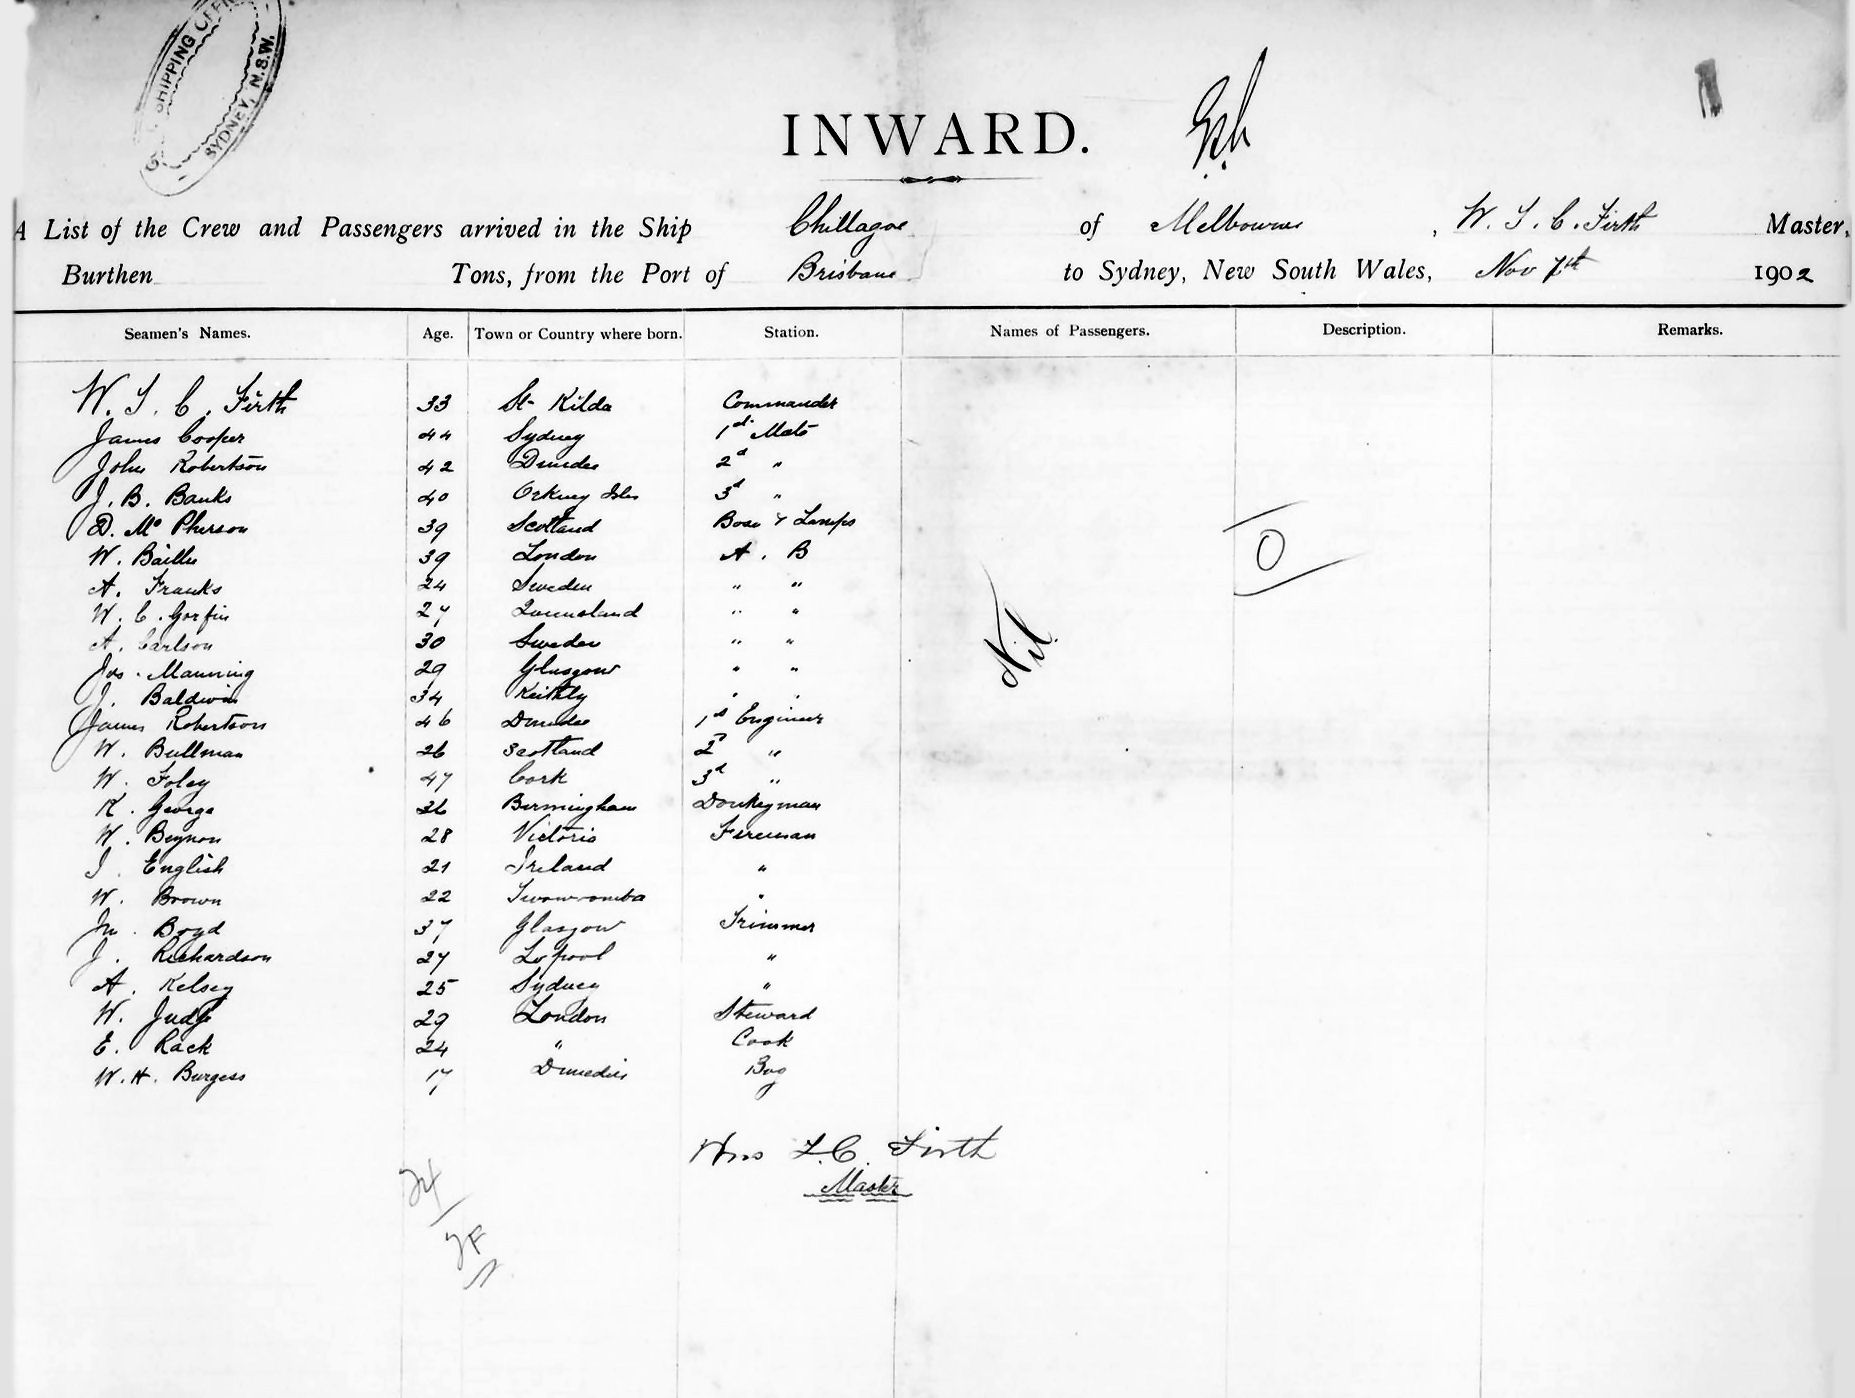 SHIPPING OFFICE
SYDNEY, N.S.W.
INWARD.
A List of the Crew and Passengers arrived in the Ship Chillagoe of Melbourne, W. T. C. Firth Master,
Burthen Tons, from the Port of Brisbane to Sydney, New South Wales, Nov 7th 1902
Seamen's Names. Age. Town or Country where born. Station. Names of Passengers. Description. Remarks.
W. T. C. Firth 33 St Kilda Commander
James Cooper 44 Sydney 1st Mate
John Robertson 42 Dundee 2d "
J. B. Banks 40 Orkney Isles 3d "
D. Mc Pherson 39 Scotland Bosn & Lamps
W. Baillie 39 London A. B
A. Franks 24 Sweden " "
W. C. Gorfin 27 Queensland " "
A. Carlson 30 Sweden " "
Jos. Manning 29 Glasgow " "
J. Baldwin 34 Keithly " "
James Robertson 46 Dundee 1st Engineer
W. Bullman 26 Scotland 2d "
W. Foley 47 Cork 3d "
K. George 36 Birmingham Donkeyman
W. Beynon 28 Victoria Fireman
J. English 21 Ireland "
W. Brown 22 Toowoomba "
Jn. Boyd 37 Glasgow Trimmer
J. Richardson 27 Lpool "
A. Kelsey 25 Sydney "
W. Judge 29 London Steward
E. Rack 24 " Cook
W. H. Burgess 17 Dunedin Boy
Nil
0
Wm T. C. Firth
Master
24